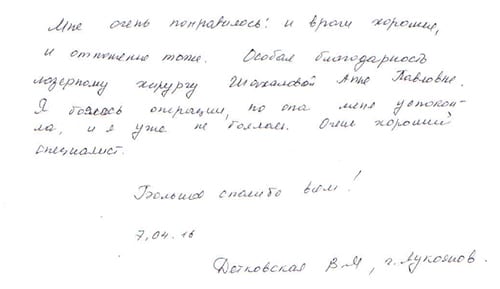 Мне очень понравилось: и врачи хорошие,
и отношение тоже. Особая благодарность
лазерному хирургу Шахаловой Анне Павловне.
Я боялась операции, но она меня успокои-
ла, и я уже не боялась. Очень хороший
специалист.
Большое спасибо всем!
7.04.16
Детковская В.М, г. Лукоянов.